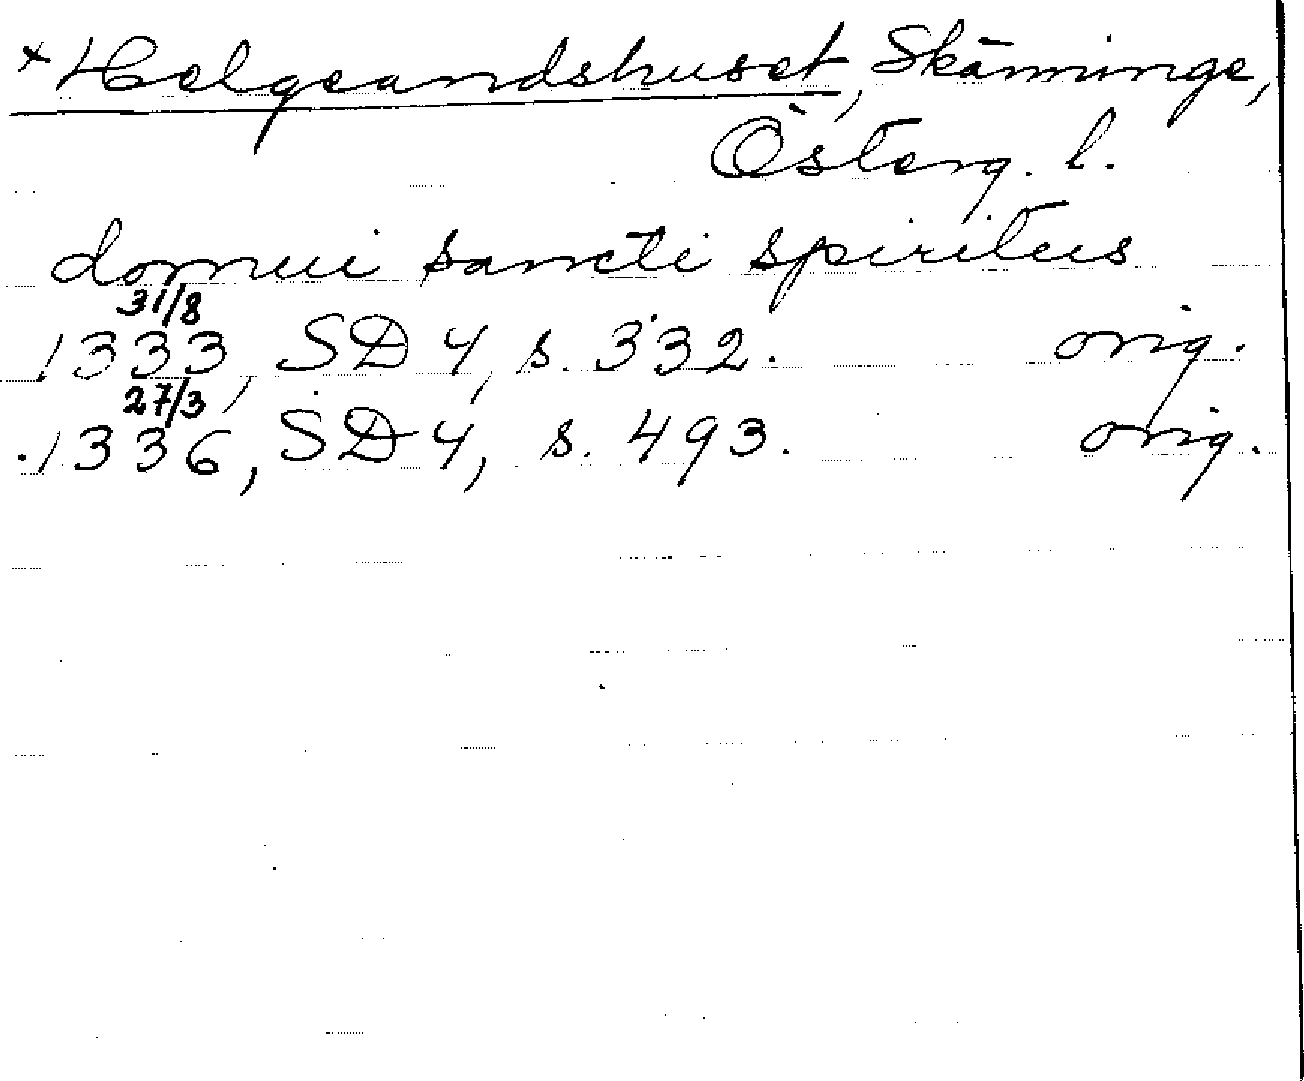 × Helgeandshuset, Skänninge,
Österg. l.
domui sancti spiritus
31/8
1333, SD 4, s. 332. orig.
27/3
1336, SD 4, s. 493. orig.